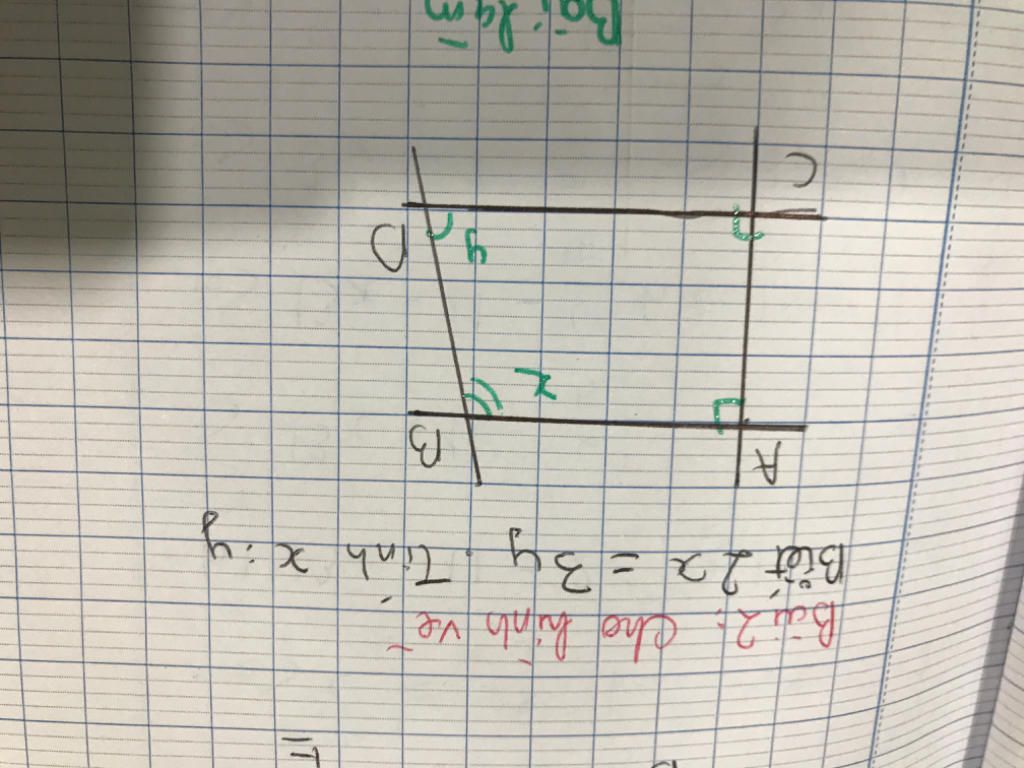 Bài 2: Cho hình vẽ
Biết 2x = 3y. Tính x; y
A B
x
y
C D
Bài làm